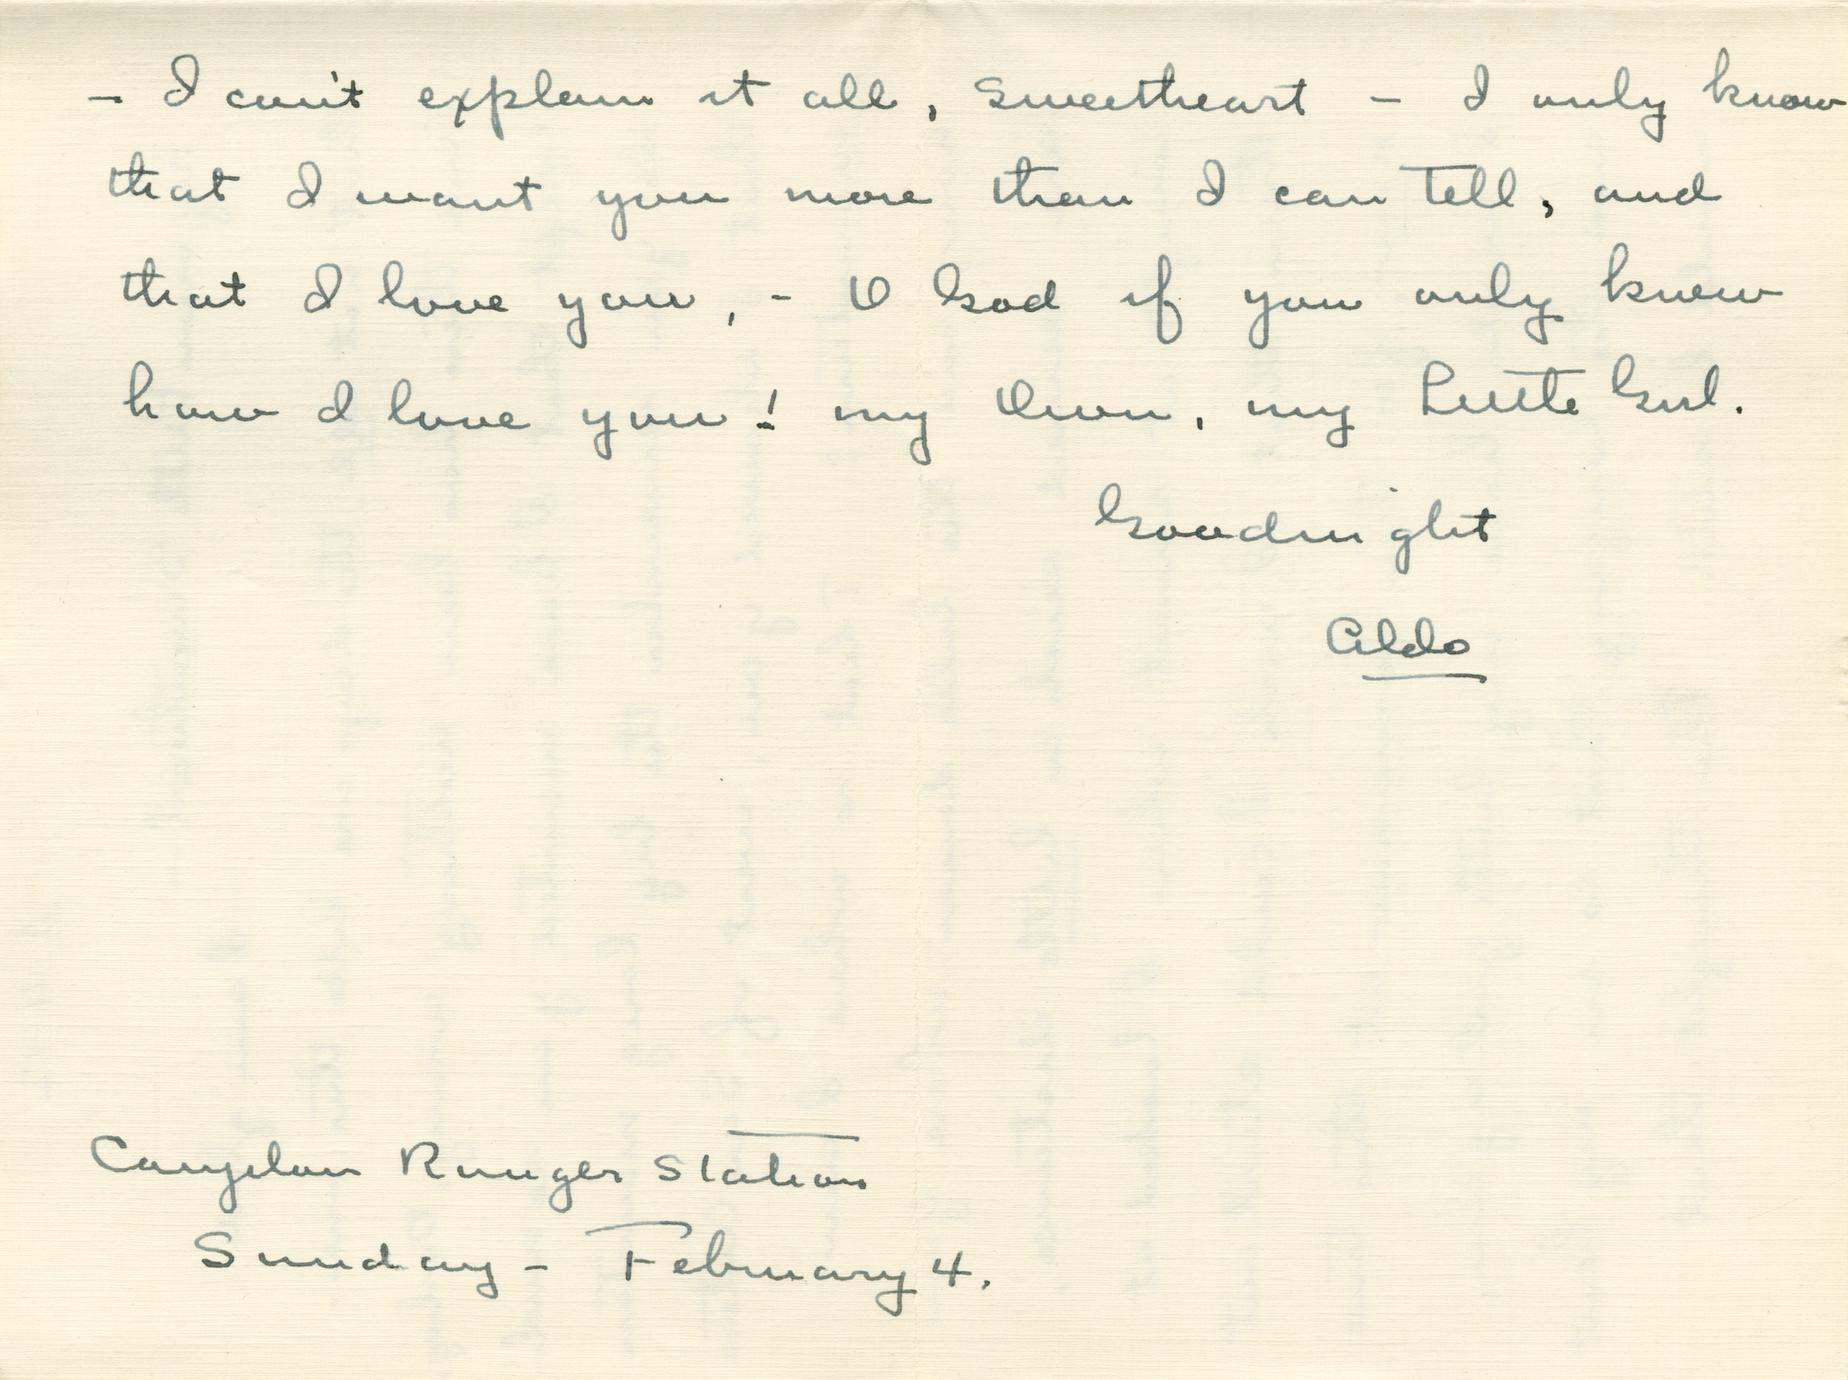 - I can't explain it all, sweetheart - I only know
that I want you more than I can tell, and
that I love you, - O God if you only knew
how I love you! my Own, my Little Girl.
Goodnight
Aldo
Ranger Station
Sunday - February 4.